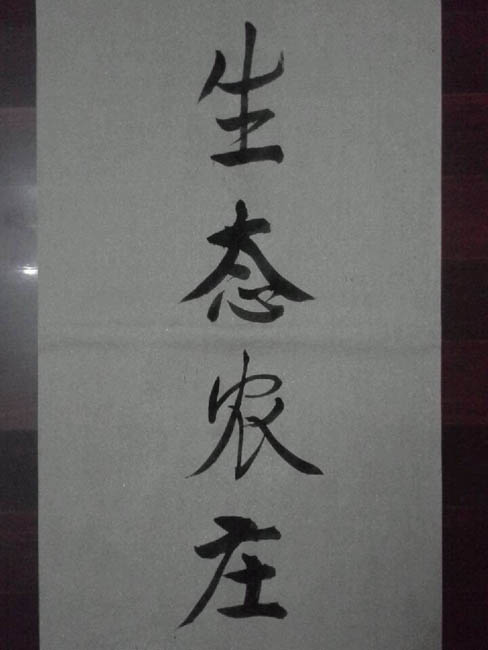 生态农庄